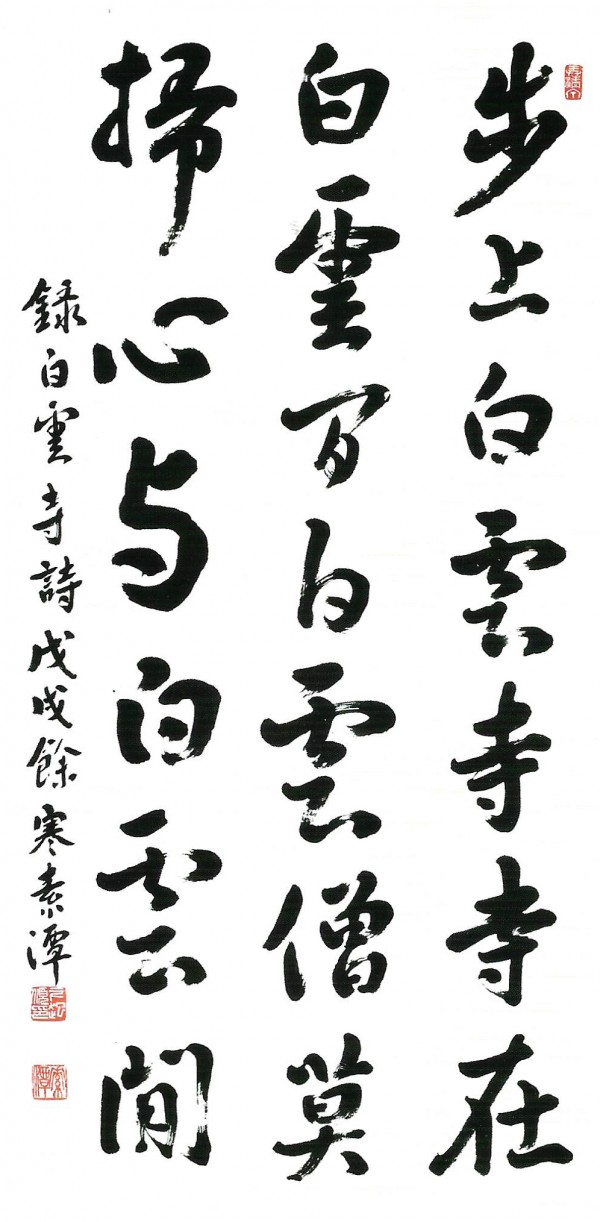 步上白雲寺寺在
白雲间白雲僧莫
掃心与白雲間
録白雲寺詩戊戌餘寒素潭